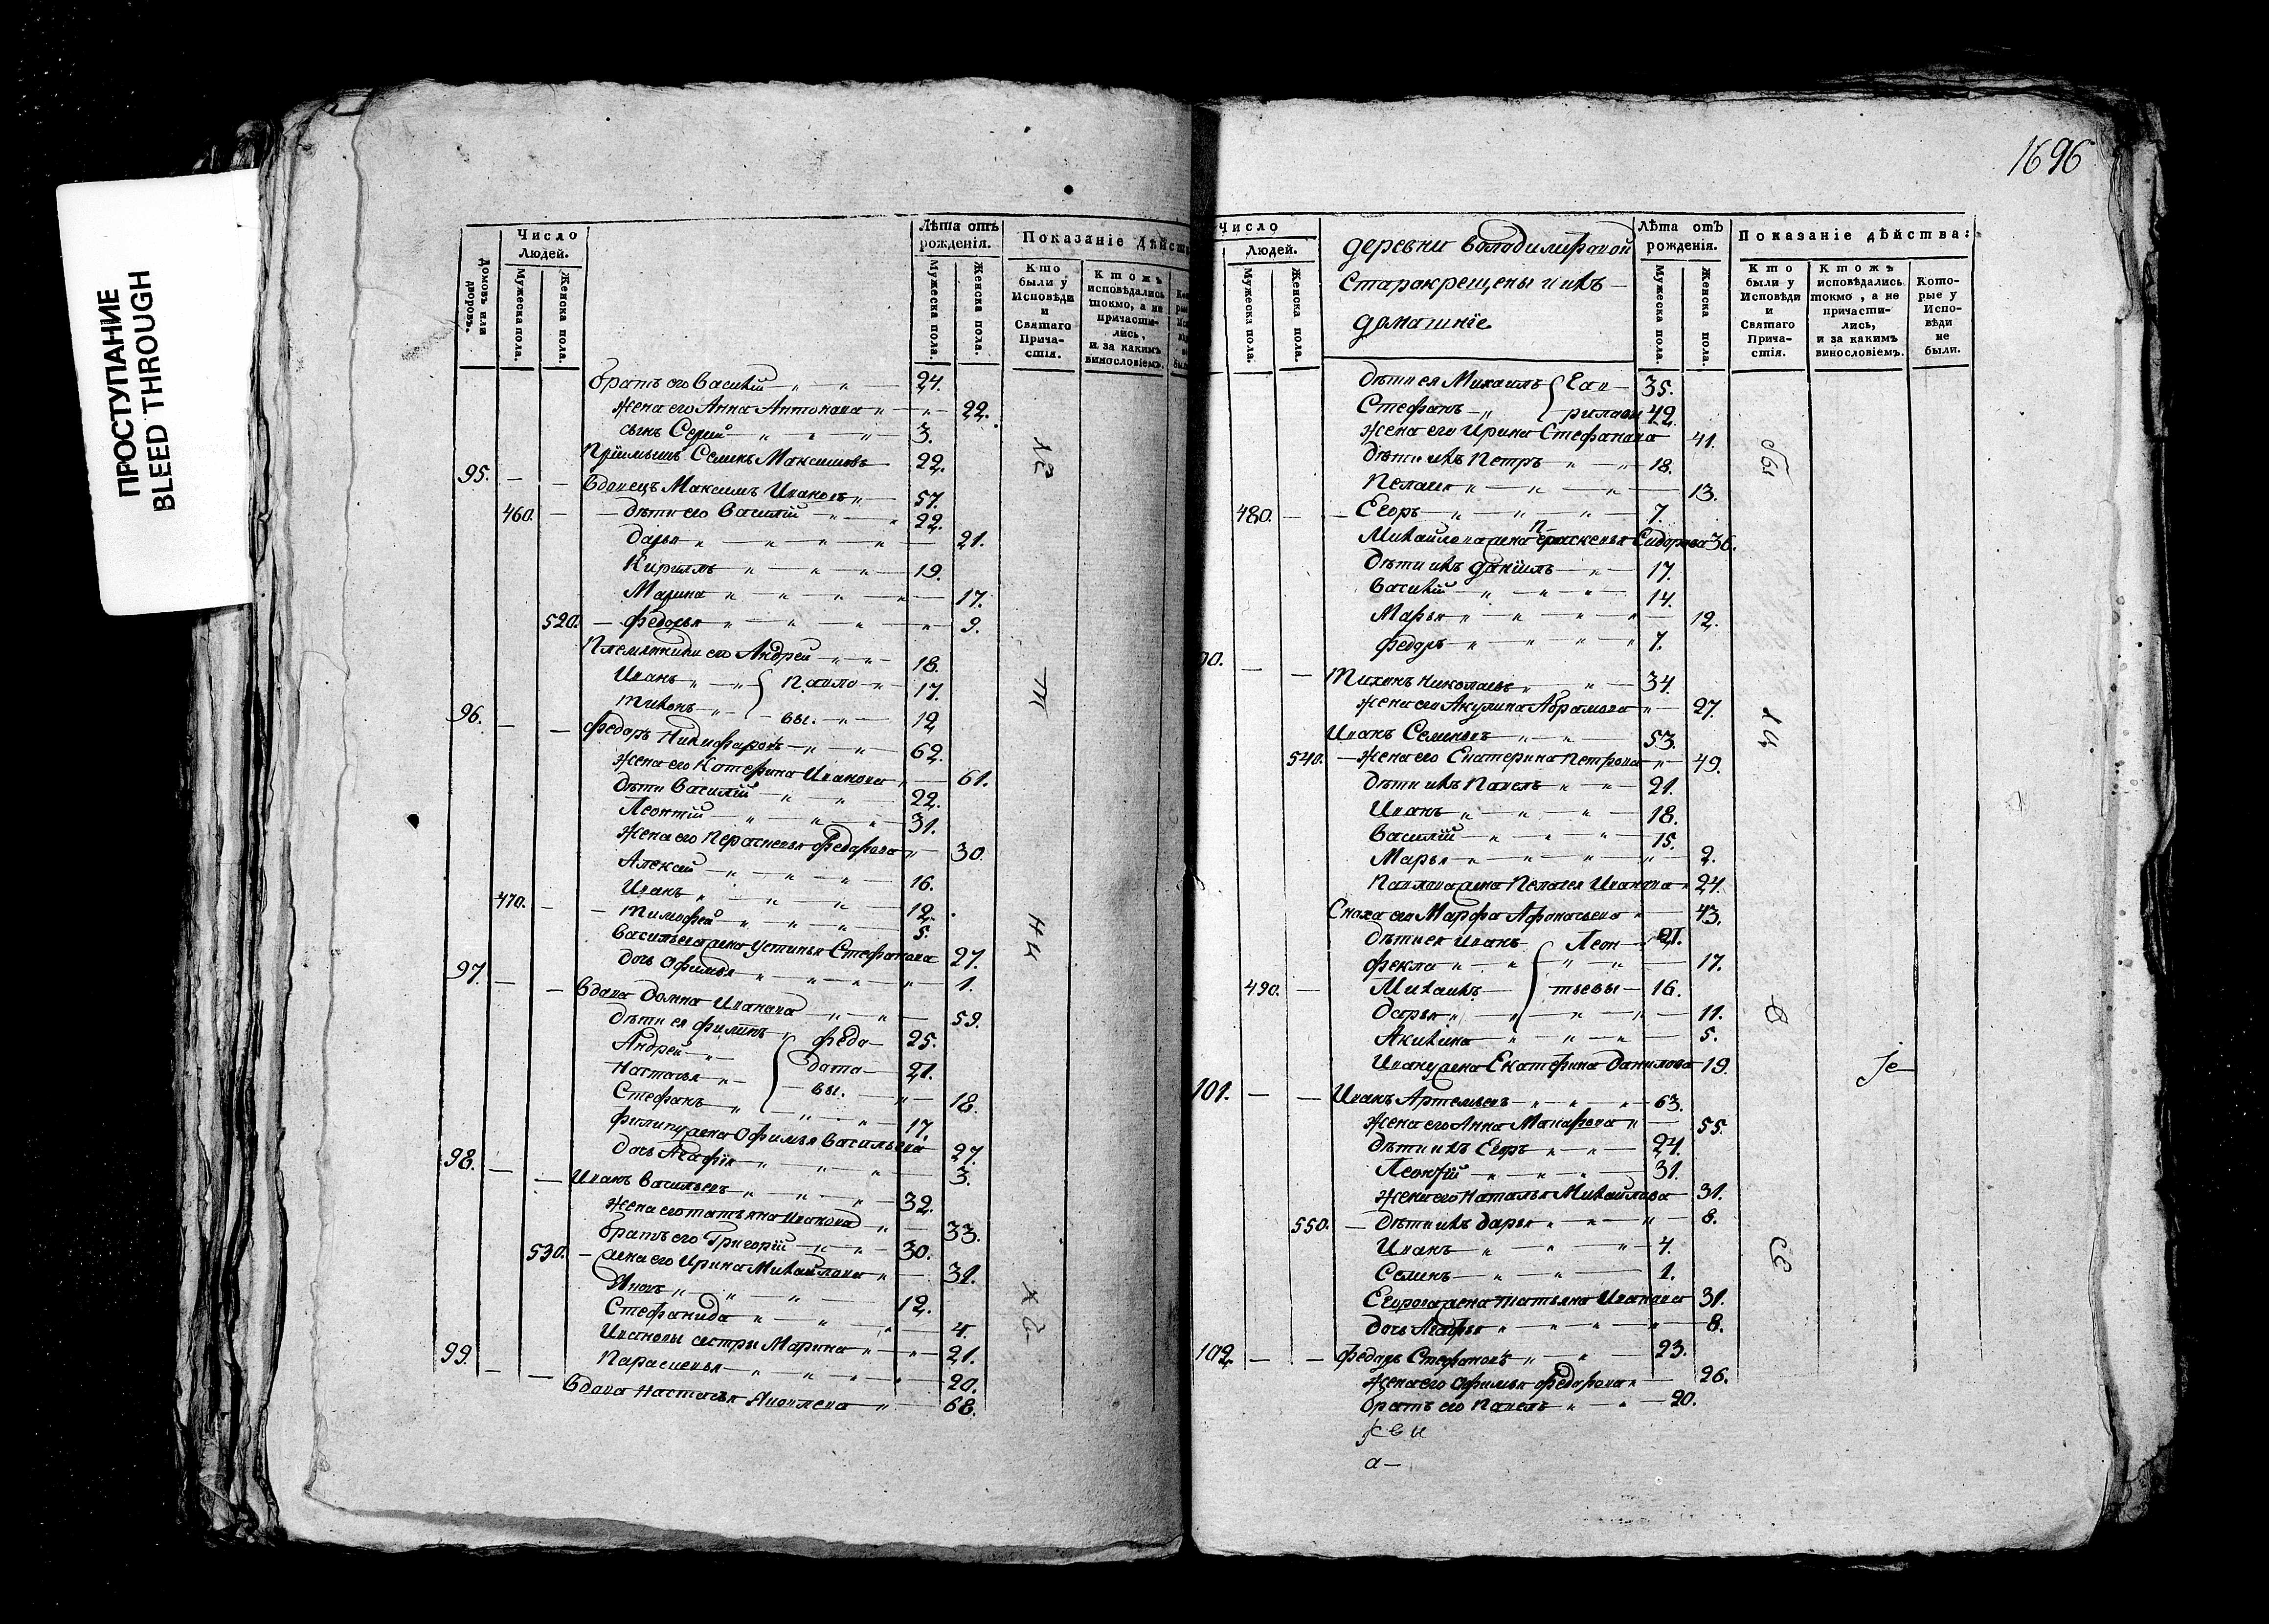 ПРОСТУПАНИЕ
BLEED THROUGH
Домовъ или дворовъ.
Число
Людей.
Мужеска пола.
Женска пола.
Лѣта отъ
рожденія.
Мужеска пола.
Женска пола.
Показаніе дѣйст
Кто
были у
Исповѣди
и
Святаго
Прича-
стія.
Ктожъ
исповѣдались
токмо, а не
причасти-
лись,
и за какимъ
винословіемъ.
братъ его Василій 24.
жена его Анна Антонова 22.
сынъ Сергій 3.
Пріимышъ Семенъ Максимовъ 22.
95. вдовецъ Максимъ Ивановъ 57.
460. дѣти его Василій 22.
Дарья 21.
Кириллъ 19.
Марина 17.
520. Федосья 9.
Племянники его Андрей 18.
Иванъ Павло 17.
Тихонъ вы. 12
96. Федоръ Никифоровъ 62.
жена его Катерина Иванова 61.
дѣти Василій 22.
Леонтій 31.
жена его Парасковья Федорова 30.
Алексѣй 16.
Иванъ 12.
470. Тимофей 5.
Васильева жена Устинья Стефанова 27.
дочь Офимья 1.
97. вдова Домна Иванова 59.
дѣти ея Филипъ Федо 25.
Андрей това 21.
Настасья вы. 18.
Стефанъ 17.
Филипу жена Офимья Васильева 27.
дочь Агафія 3.
98. Иванъ Васильевъ 32.
жена его Татьяна Иванова 33.
братъ его Григорій 30.
530. жена его Ирина Михайлова 31.
Яковъ 12.
Стефанида 4.
Ивановы сестры Марина 21.
Парасковья 20.
99. вдова Настасья Яковлева 68.
1696
Число
Людей.
Мужеска пола.
Женска пола.
деревни Володимировой
Старокрещены и ихъ
домашніе
Лѣта отъ
рожденія.
Мужеска пола.
Женска пола.
Показаніе дѣйства:
Кто
были у
Исповѣди
и
Святаго
Прича-
стія.
Ктожъ
исповѣдались
токмо, а не
причасти-
лись,
и за какимъ
винословіемъ.
Кото-
рые у
Испо-
вѣди
не
были.
дѣти ея Михаилъ Гав 35.
Стефанъ риловы 42.
жена его Ирина Стефанова 41.
дѣти ихъ Петръ 18.
Пелагея 13.
480. Егоръ 7.
Михайлова жена Праскевья Сидорова 36.
дѣти ихъ Даніилъ 17.
Василій 14.
Марья 12.
Федоръ 7.
00. Тихонъ Николаевъ 34.
жена его Акулина Абрамова 27.
Иванъ Семеновъ 53.
540. жена его Екатерина Петрова 49.
дѣти ихъ Павелъ 21.
Иванъ 18.
Василій 15.
Марья 2.
Павлова жена Пелагея Иванова 24.
Сноха его Марфа Афонасьева 43.
дѣти ея Иванъ Леон 21.
Фекла 17.
490. Михаилъ тьевы 16.
Дарья 11.
Акилина 5.
Ивану жена Екатерина Данилова 19.
101. Иванъ Артемьевъ 63.
жена его Анна Макарова 55.
дѣти ихъ Егоръ 24.
Леонтій 31.
жена его Наталья Михайлова 31.
550. дѣти ихъ Дарья 8.
Иванъ 4.
Семенъ 1.
Егорова жена Татьяна Иванова 31.
дочь Агафья 8.
102. Федоръ Стефановъ 23.
жена его Офимья Федорова 26.
братъ его Павелъ 20.